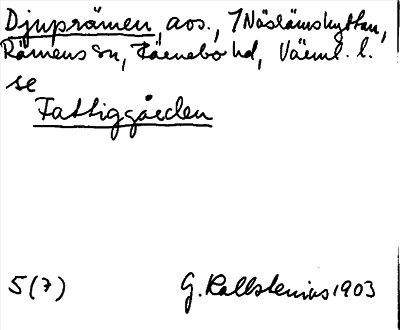 Djuprämen, avs., 7 Näsrämshyttan,
Rämens sn, Färnebo hd, Värml. l.
se
Fattiggården
5(7) G. Kallstenius 1903